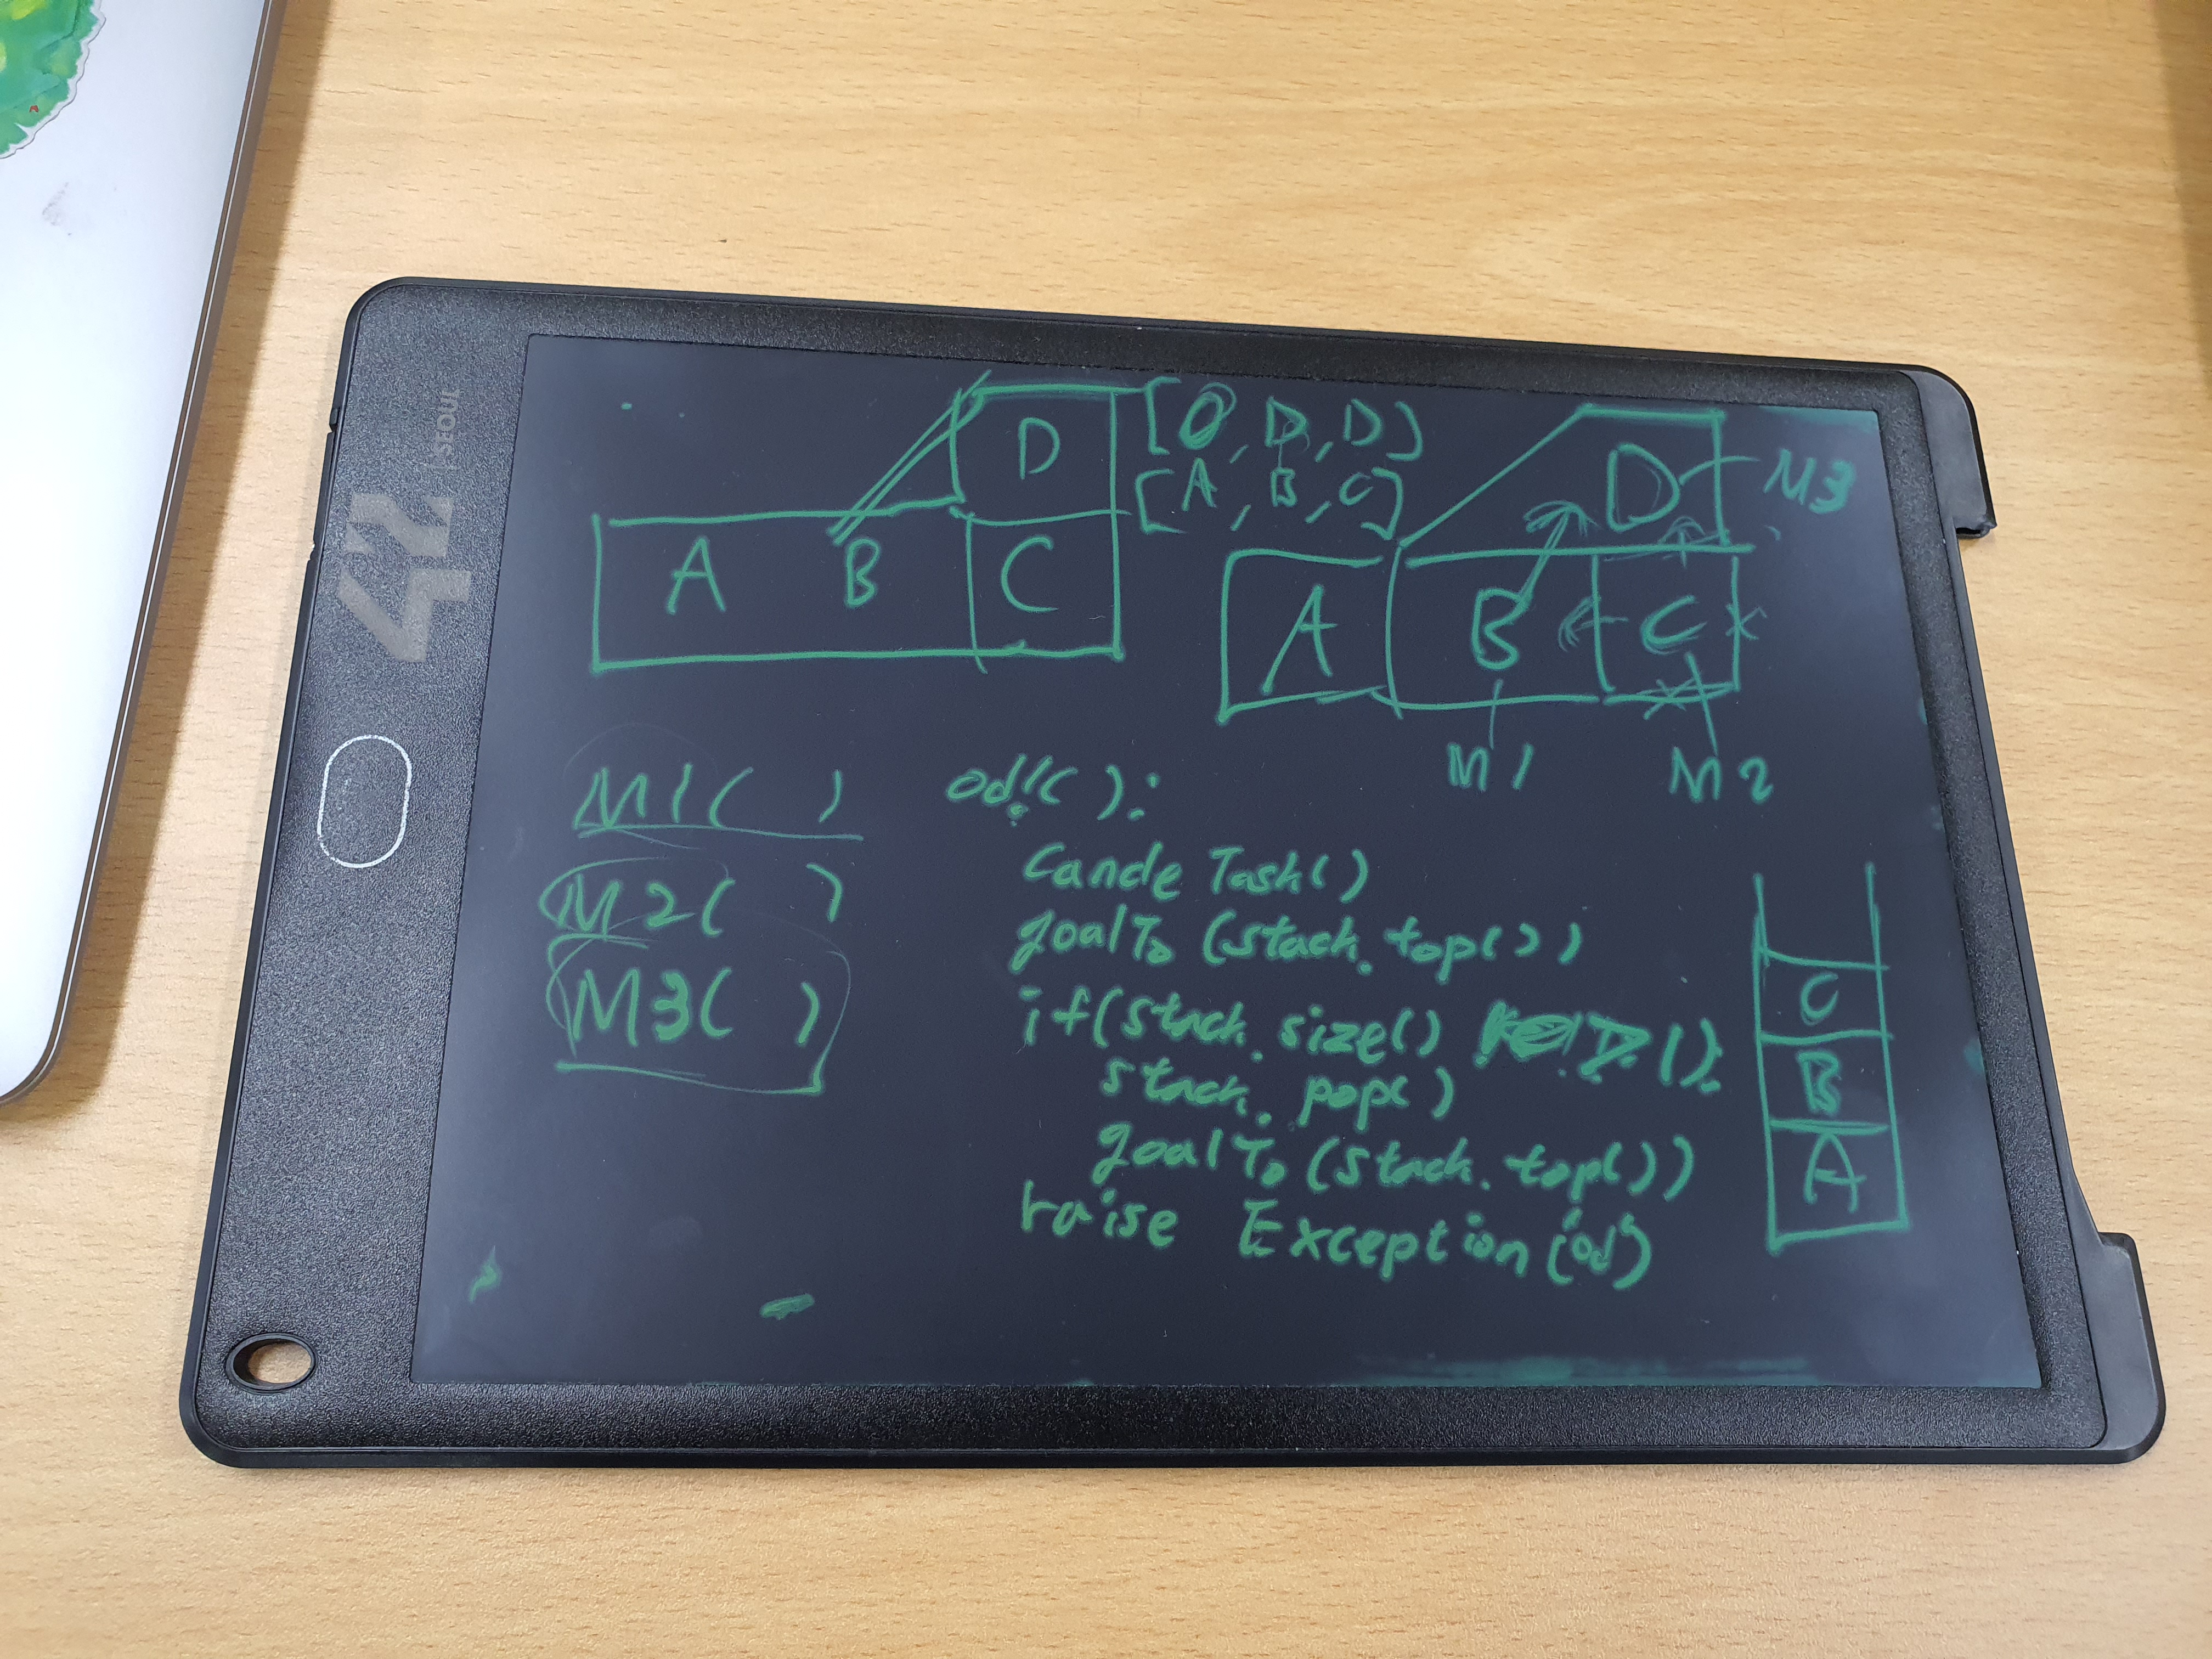 42 | inors
D
[ , D, D]
[A, B, C]
A B C
D M3
A B C
M1 M2
M1( )
M2( )
M3( )
od!( ):
cancle Task()
goalTo (stack.top())
if(stack.size() ):
stack.pop()
goalTo (stack.top())
raise Exception(od')
C
B
A